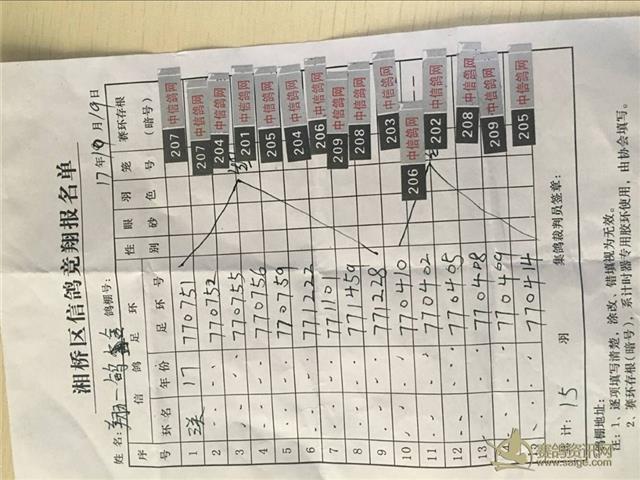 湘桥区信鸽竞翔报名单
姓名:翔一鸽 鸽棚号: 17年10月19日
序号 信鸽足环 环名 年份 足环号 性别 眼砂 羽色 笼号 赛环存根(暗号)
1 17 770751 207 中信鸽网
2 770752 207 中信鸽网
3 770755 204 中信鸽网
4 770756 201 中信鸽网
5 770759 205 中信鸽网
6 771222 204 中信鸽网
7 771101 206 中信鸽网
8 771459 209 中信鸽网
9 771228 208 中信鸽网
10 770410 203 中信鸽网
11 770402 206 中信鸽网
12 770405 202 中信鸽网
13 770408 208 中信鸽网
770409 209 中信鸽网
770414 205 中信鸽网
累计:15 羽 集鸽裁判员签章:
鸽棚地址:
注:1、逐项填写清楚,涂改、错填视为无效。
2、赛环存根(暗号),累计时器专用胶环使用,由协会填写。
赛鸽资讯网
www.saige.com